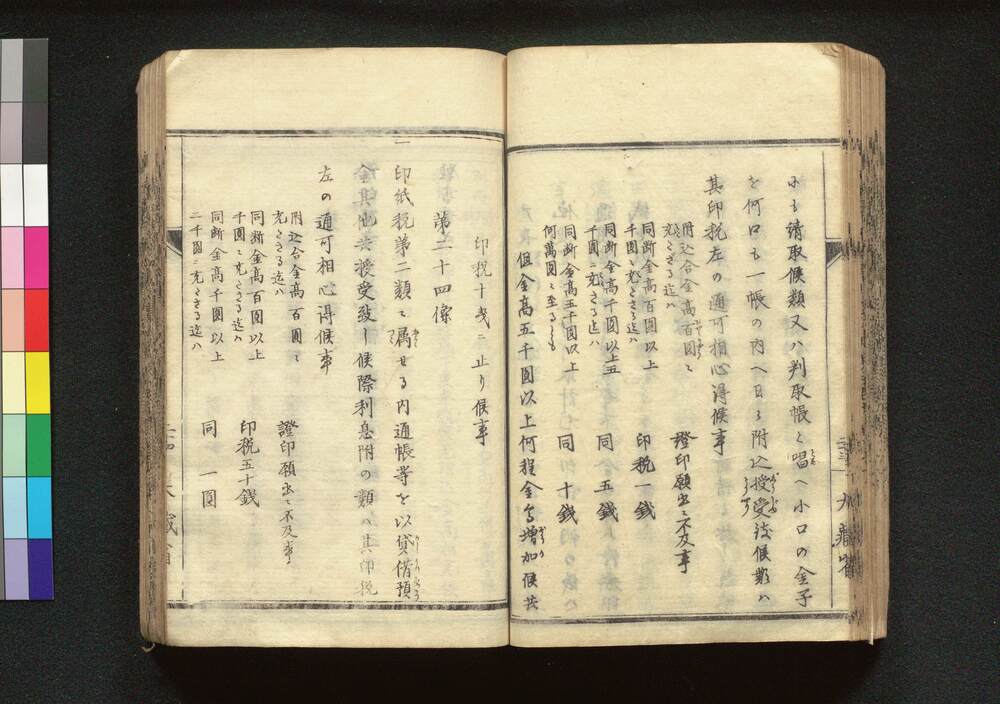 にも請取候類又ハ判取帳と唱へ小口の金子
を何口も一帳の内へ日々附込授受致候類ハ
其印税左の通可相心得候事
附込合金高百圓に
充たさる迄ハ
證印願出に不及事
同断金高百圓以上
千圓に充たさる迄ハ
印税一錢
同断金高千圓以上五
千圓に充たさる迄ハ
同五錢
同断金高五千圓以上
何萬圓に至るとも
同十錢
但金高五千圓以上何程金高増加候共
印税十錢ニ止り候事
第二十四條
一印紙税第二類に属せる内通帳等を以貸借預
金其他共授受致し候際利息附の類ハ其印税
左の通可相心得候事
附込合金高百圓に
充たさる迄ハ
證印願出に不及事
同断金高百圓以上
千圓に充たさる迄ハ
印税五十錢
同断金高千圓以上
二千圓に充たさる迄ハ
同一圓
大藏省